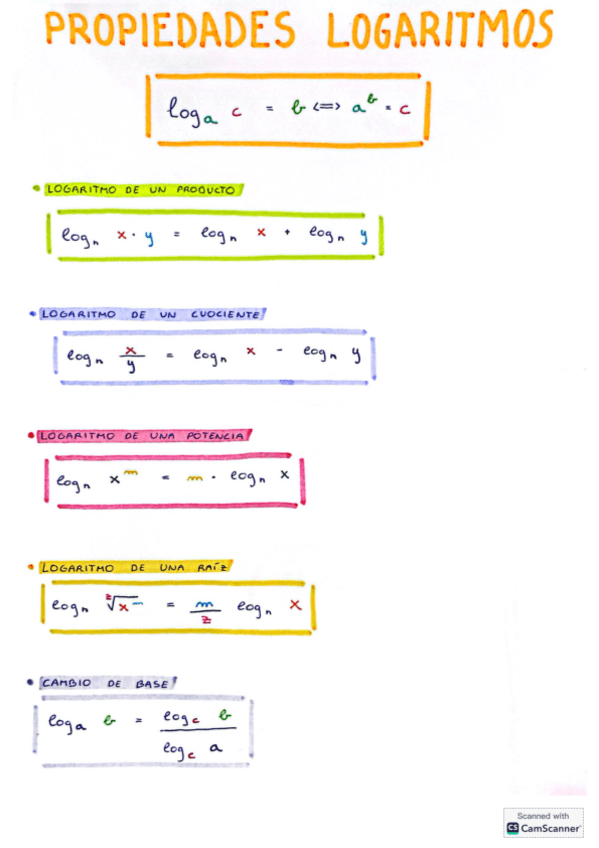 PROPIEDADES LOGARITMOS
logₐ c = b <=> aᵇ = c
• LOGARITMO DE UN PRODUCTO
logₙ x · y = logₙ x + logₙ y
• LOGARITMO DE UN CUOCIENTE
logₙ x/y = logₙ x - logₙ y
• LOGARITMO DE UNA POTENCIA
logₙ xᵐ = m · logₙ x
• LOGARITMO DE UNA RAÍZ
logₙ ᶻ√xᵐ = m/z logₙ x
• CAMBIO DE BASE
logₐ b = log_c b / log_c a
Scanned with
CS CamScanner